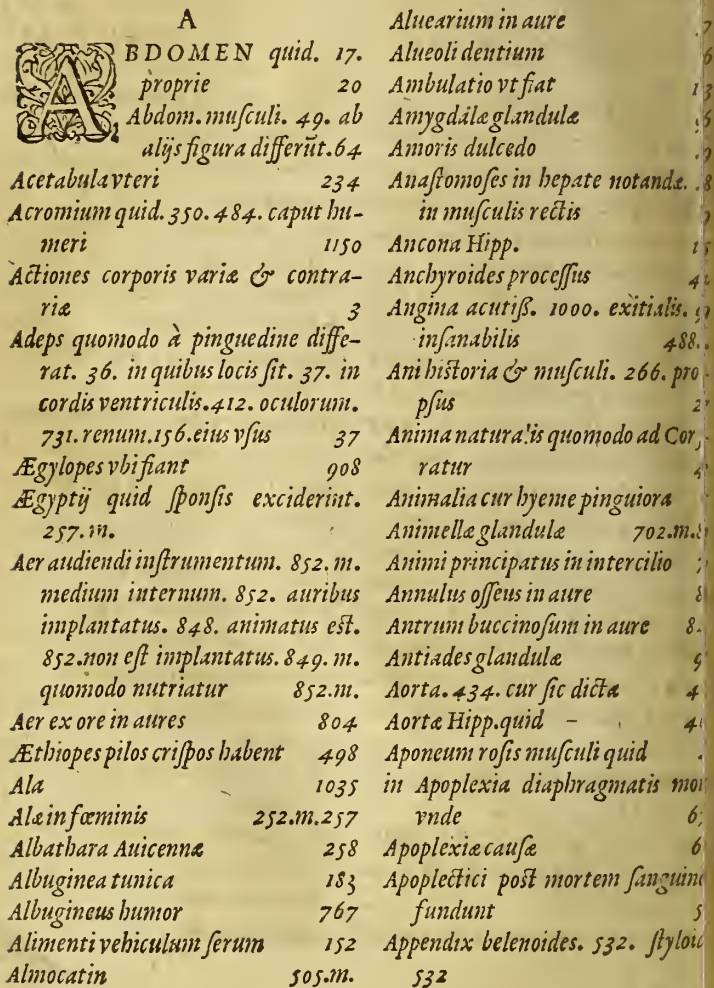 A
ABDOMEN quid. 17.
proprie 20
Abdom. muſculi. 49. ab
alijs figura differūt. 64
Acetabula vteri 234
Acromium quid. 350. 484. caput hu-
meri 1150
Actiones corporis variæ & contra-
riæ 3
Adeps quomodo à pinguedine diffe-
rat. 36. in quibus locis ſit. 37. in
cordis ventriculis. 412. oculorum.
731. renum. 156. eius vſus 37
Ægylopes vbi fiant 908
Ægyptij quid ſponſis exciderint.
257. m.
Aer audiendi inſtrumentum. 852. m.
medium internum. 852. auribus
implantatus. 848. animatus eſt.
852. non eſt implantatus. 849. m.
quomodo nutriatur 852. m.
Aer ex ore in aures 804
Æthiopes pilos criſpos habent 498
Ala 1035
Alæ in fœminis 252. m. 257
Albathara Auicennæ 258
Albuginea tunica 183
Albugineus humor 767
Alimenti vehiculum ſerum 152
Almocatin 505. m.
Aluearium in aure
Alueoli dentium
Ambulatio vt fiat
Amygdalæ glandulæ
Amoris dulcedo
Anaſtomoſes in hepate notandæ.
in muſculis rectis
Ancona Hipp.
Anchyroides proceſſus
Angina acutiß. 1000. exitialis.
inſanabilis 488.
Ani hiſtoria & muſculi. 266. pro
pſus
Anima naturalis quomodo ad Cor
ratur
Animalia cur hyeme pinguiora
Animellæ glandulæ 702. m.
Animi principatus in intercilio
Annulus oſſeus in aure
Antrum buccinoſum in aure
Antiades glandulæ
Aorta. 434. cur ſic dicta
Aortæ Hipp. quid
Aponeum roſis muſculi quid
in Apoplexia diaphragmatis
vnde
Apoplexiæ cauſæ
Apoplectici poſt mortem
fundunt
Appendix belenoides. 532.
532